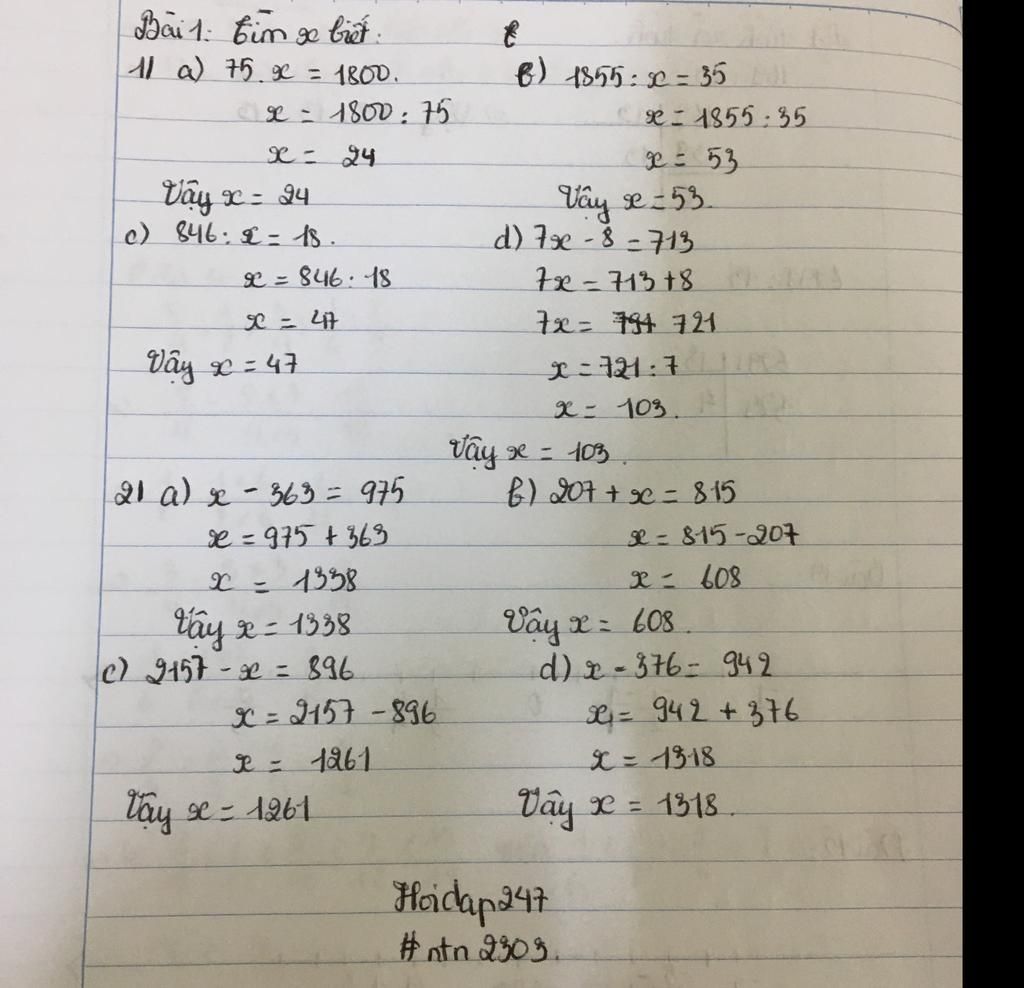 Bài 1: Tìm x biết:
1) a) 75.x = 1800.
x = 1800 : 75
x = 24
Vậy x = 24
b) 1855 : x = 35
x = 1855 : 35
x = 53
Vậy x = 53.
c) 846 : x = 18.
x = 846 : 18
x = 47
Vậy x = 47
d) 7x - 8 = 713
7x = 713 + 8
7x = 721
x = 721 : 7
x = 103.
Vậy x = 103.
2) a) x - 363 = 975
x = 975 + 363
x = 1338
Vậy x = 1338
b) 207 + x = 815
x = 815 - 207
x = 608
Vậy x = 608.
c) 2157 - x = 896
x = 2157 - 896
x = 1261
Vậy x = 1261
d) x - 376 = 942
x = 942 + 376
x = 1318
Vậy x = 1318.
Hoidap247
#ntn2303.